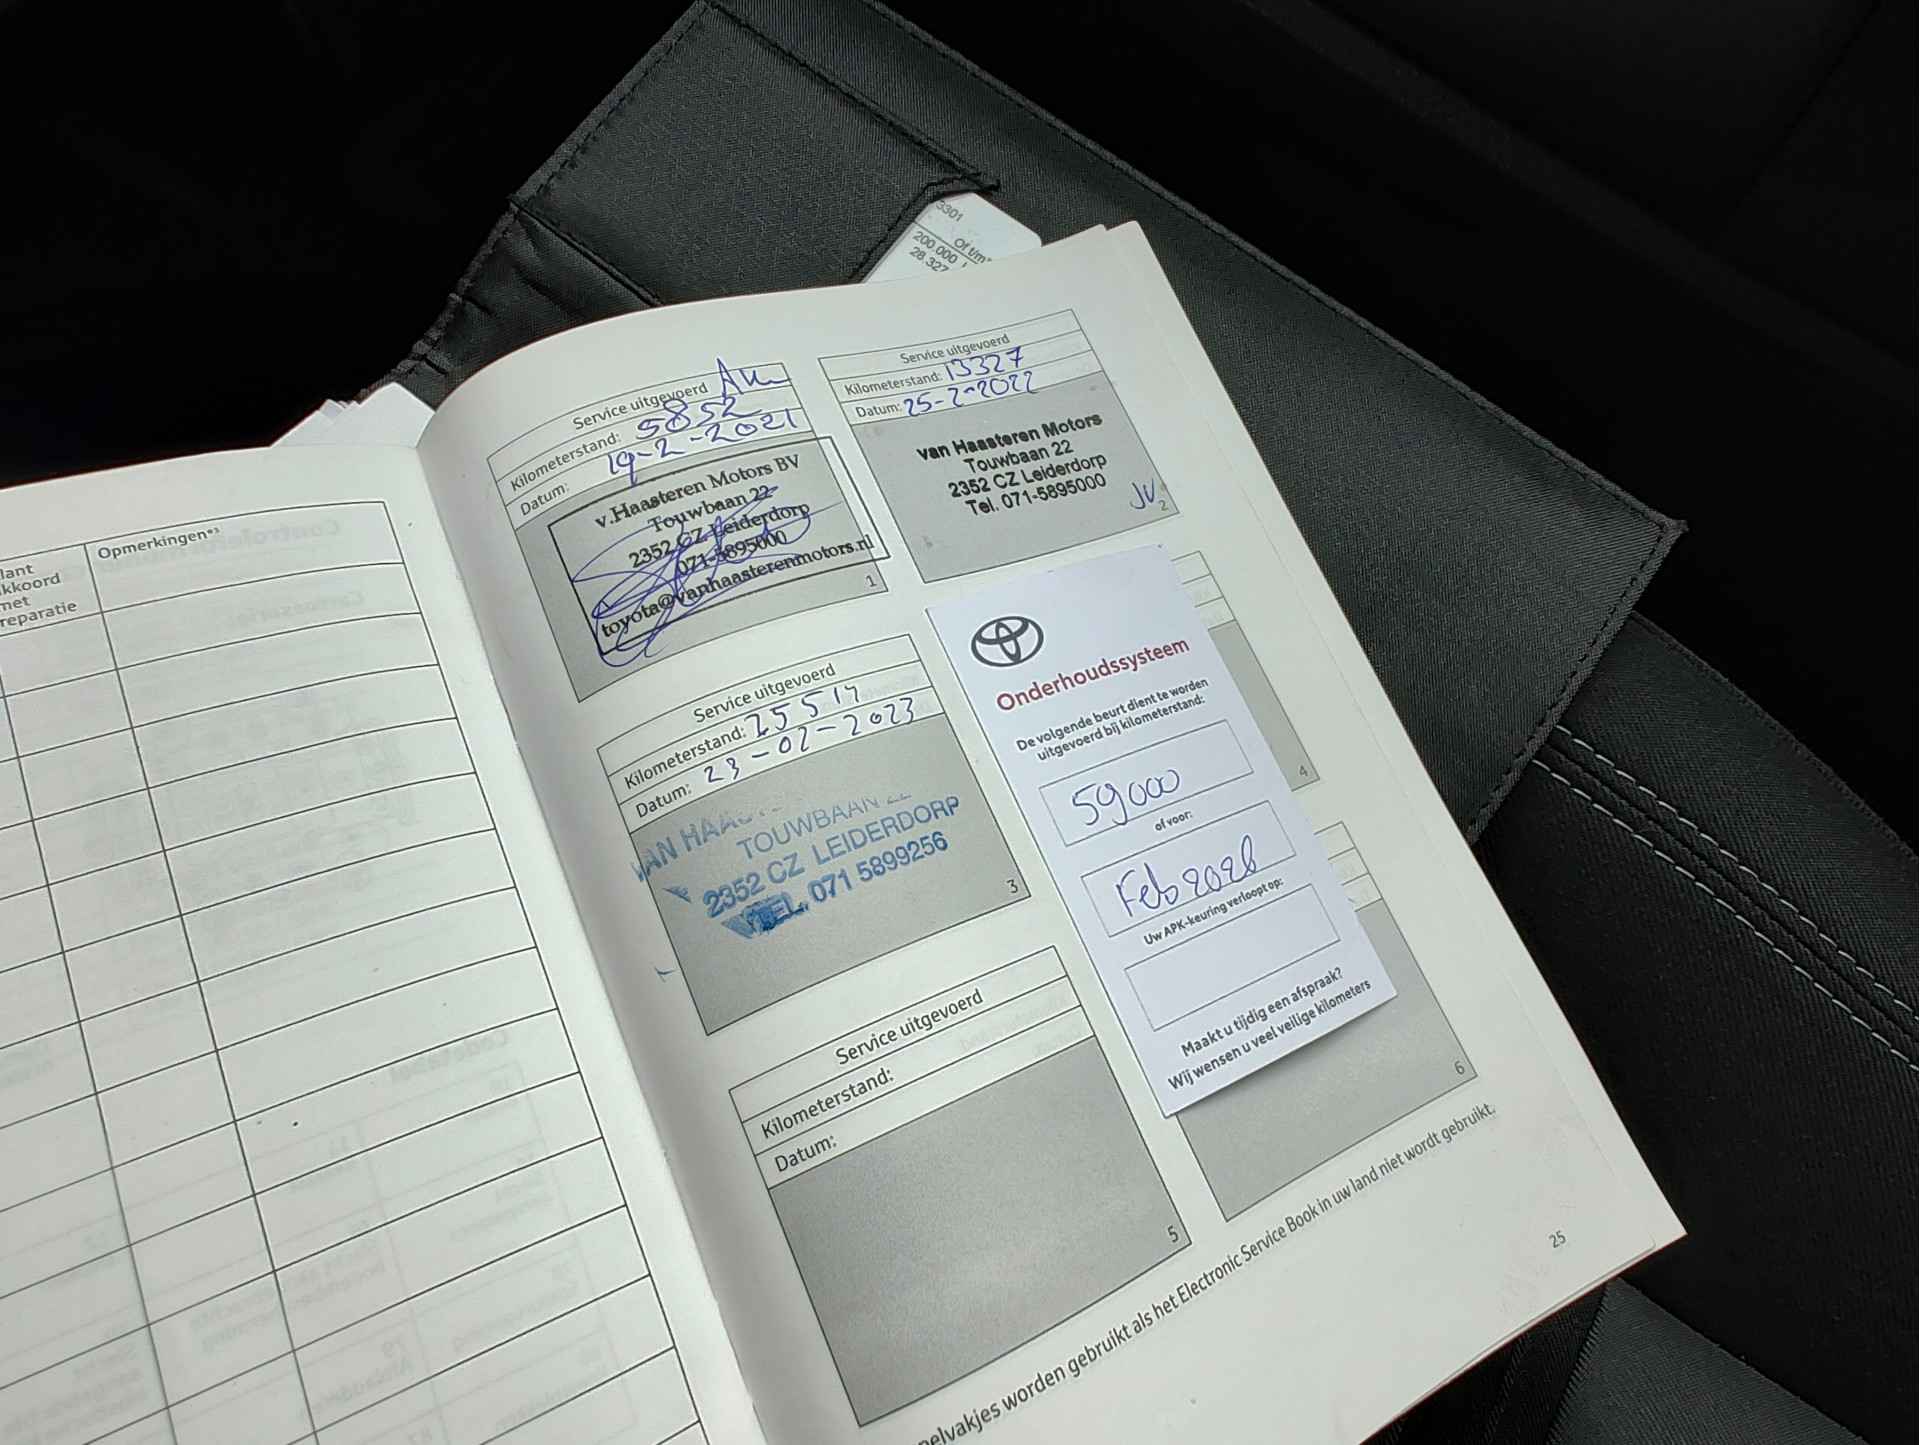 3301
Of t/m
200.000
28.327
lant
kkoord
met
reparatie
Opmerkingen*³
Service uitgevoerd
Kilometerstand: 5852
Datum: 19-2-2021
v.Haasteren Motors BV
Touwbaan 22
2352 CZ Leiderdorp
071-5895000
toyota@vanhaasterenmotors.nl
1
Service uitgevoerd
Kilometerstand: 13327
Datum: 25-2-2022
van Haasteren Motors
Touwbaan 22
2352 CZ Leiderdorp
Tel. 071-5895000
JV
2
Service uitgevoerd
Kilometerstand: 25517
Datum: 23-02-2023
VAN HAAS
TOUWBAAN 22
2352 CZ LEIDERDORP
TEL. 071 5899256
3
4
Onderhoudssysteem
De volgende beurt dient te worden
uitgevoerd bij kilometerstand:
59000
of voor:
Feb 2026
Uw APK-keuring verloopt op:
Maakt u tijdig een afspraak?
Wij wensen u veel veilige kilometers
Service uitgevoerd
Kilometerstand:
Datum:
5
6
pelvakjes worden gebruikt als het Electronic Service Book in uw land niet wordt gebruikt.
25